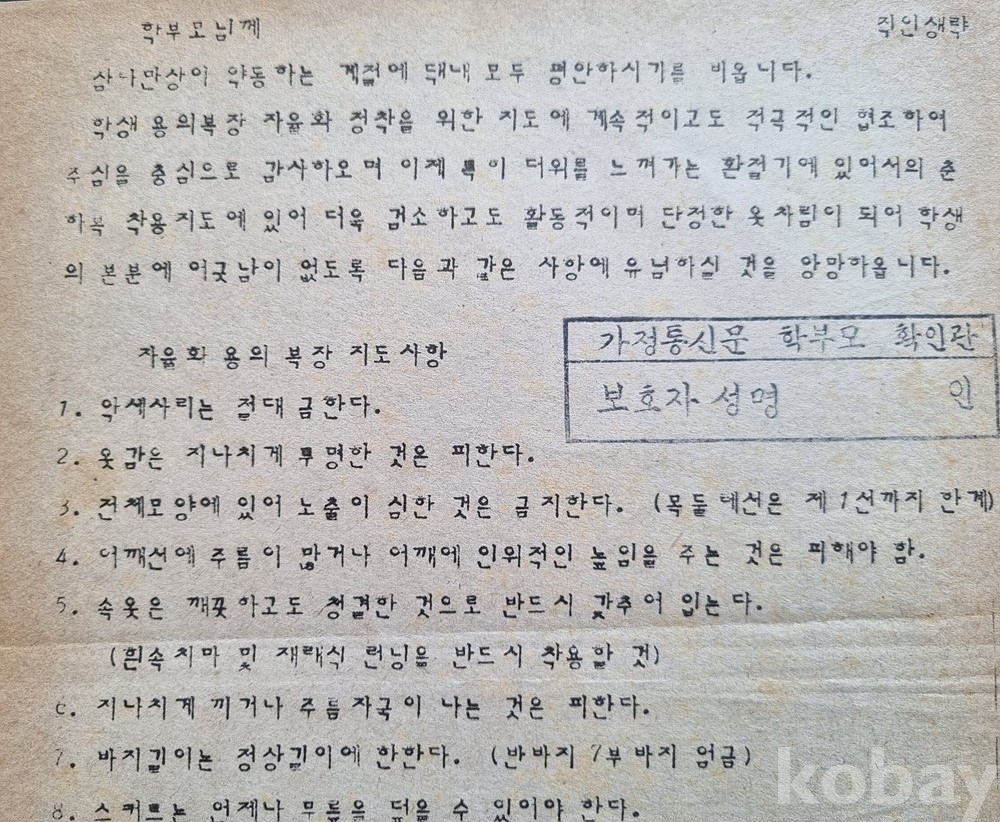 학부모님께
직인생략
삼나만상이 약동하는 계절에 댁내 모두 평안하시기를 비옵니다.
학생 용의복장 자율화 정착을 위한 지도에 계속적이고도 적극적인 협조하여
주심을 충심으로 감사하오며 이제 특이 더위를 느껴가는 환절기에 있어서의 춘
하복 착용지도에 있어 더욱 검소하고도 활동적이며 단정한 옷차림이 되어 학생
의 본분에 어긋남이 없도록 다음과 같은 사항에 유념하실 것을 앙망하옵니다.
가정통신문 학부모 확인란
보호자 성명 인
자율화 용의 복장 지도사항
1. 악세사리는 절대 금한다.
2. 옷감은 지나치게 투명한 것은 피한다.
3. 전체모양에 있어 노출이 심한 것은 금지한다. (목둘레선은 제1선까지 한계)
4. 어깨선에 주름이 많거나 어깨에 인위적인 높임을 주는 것은 피해야 함.
5. 속옷은 깨끗하고도 청결한 것으로 반드시 갖추어 입는다.
(흰속치마 및 재래식 런닝을 반드시 착용할 것)
6. 지나치게 끼거나 주름자국이 나는 것은 피한다.
7. 바지길이는 정상길이에 한한다. (반바지 7부바지 엄금)
8. 스커트는 언제나 무릎을 덮을 수 있어야 한다.
kobay